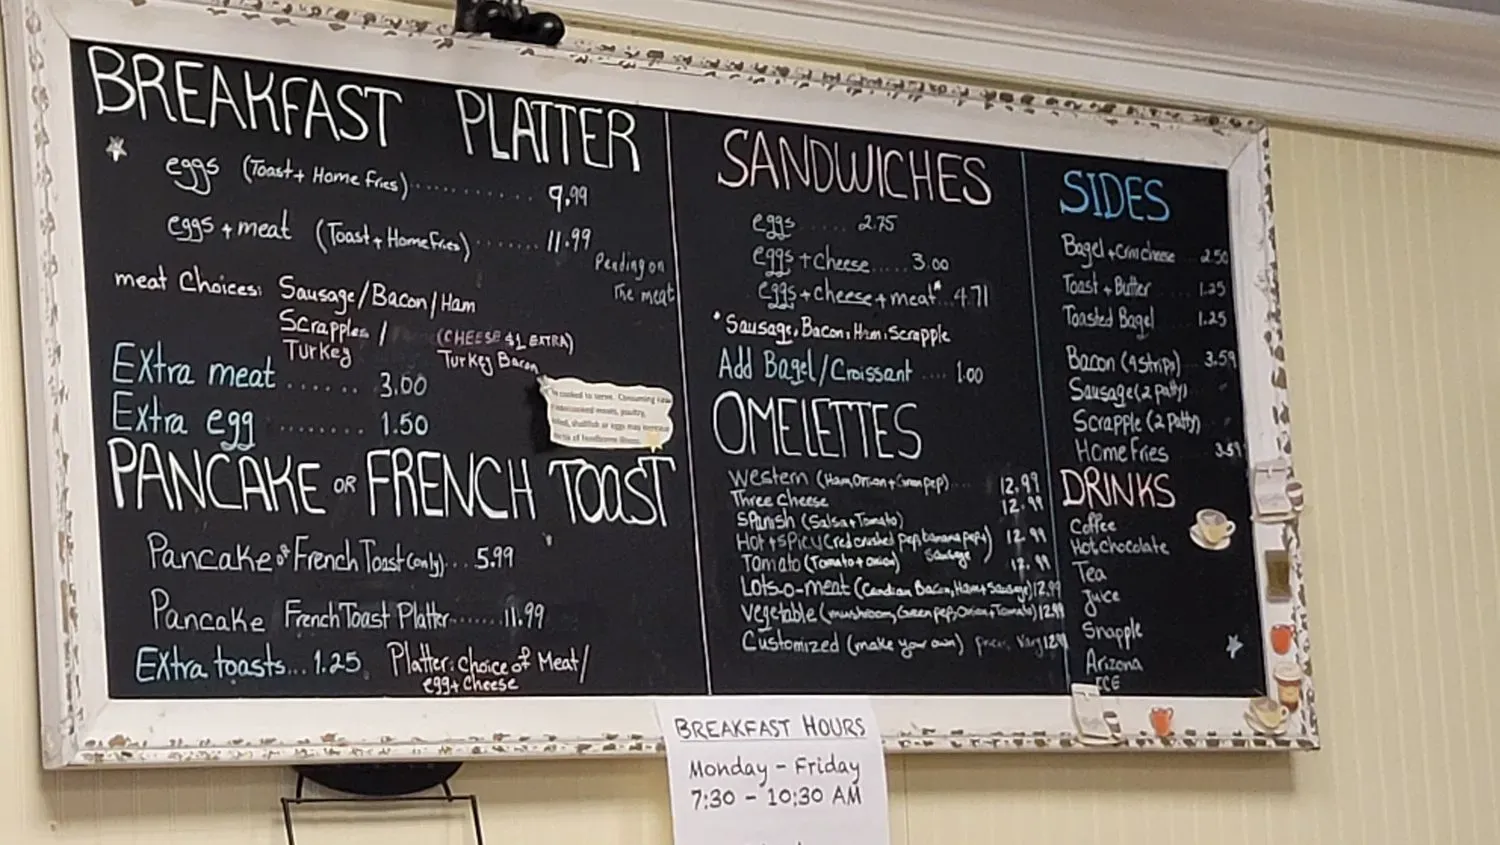 BREAKFAST PLATTER
eggs (Toast + Home Fries) .......... 9.99
eggs + meat (Toast + Home Fries) ....... 11.99
Pending on
The meat
meat Choices: Sausage/Bacon/Ham
Scrapples /
(CHEESE $1 EXTRA)
Turkey
Turkey Bacon
Extra meat ...... 3.00
Extra egg ........ 1.50
cooked to serve. Consuming raw
undercooked meats, poultry,
shellfish or eggs may increase
of foodborne illness.
PANCAKE OR FRENCH TOAST
Pancake or French Toast (only)... 5.99
Pancake French Toast Platter....... 11.99
Extra toasts... 1.25
Platter: Choice of Meat/
egg + Cheese
SANDWICHES
eggs ..... 2.75
eggs + cheese..... 3.00
eggs + cheese + meat*.. 4.71
* Sausage, Bacon, Ham, Scrapple
Add Bagel/Croissant .... 1.00
OMELETTES
Western (Ham, Onion + Green pep) 12.99
Three Cheese 12.99
Spanish (Salsa + Tomato)
Hot + Spicy (red crushed pep, banana pep + Sausage) 12.99
Tomato (Tomato + onion) 12.99
Lots-o-meat (Candian Bacon, Ham + Sausage) 12.99
Vegetable (mushroom, Green pep, Onion + Tomato) 12.99
Customized (make your own)
SIDES
Bagel + Crm cheese 2.50
Toast + Butter 1.25
Toasted Bagel 1.25
Bacon (4 strips) 3.59
Sausage (2 patty)
Scrapple (2 Patty)
Home Fries 3.59
DRINKS
Coffee
Hot chocolate
Tea
Juice
Snapple
Arizona
ICE
BREAKFAST HOURS
Monday - Friday
7:30 - 10:30 AM